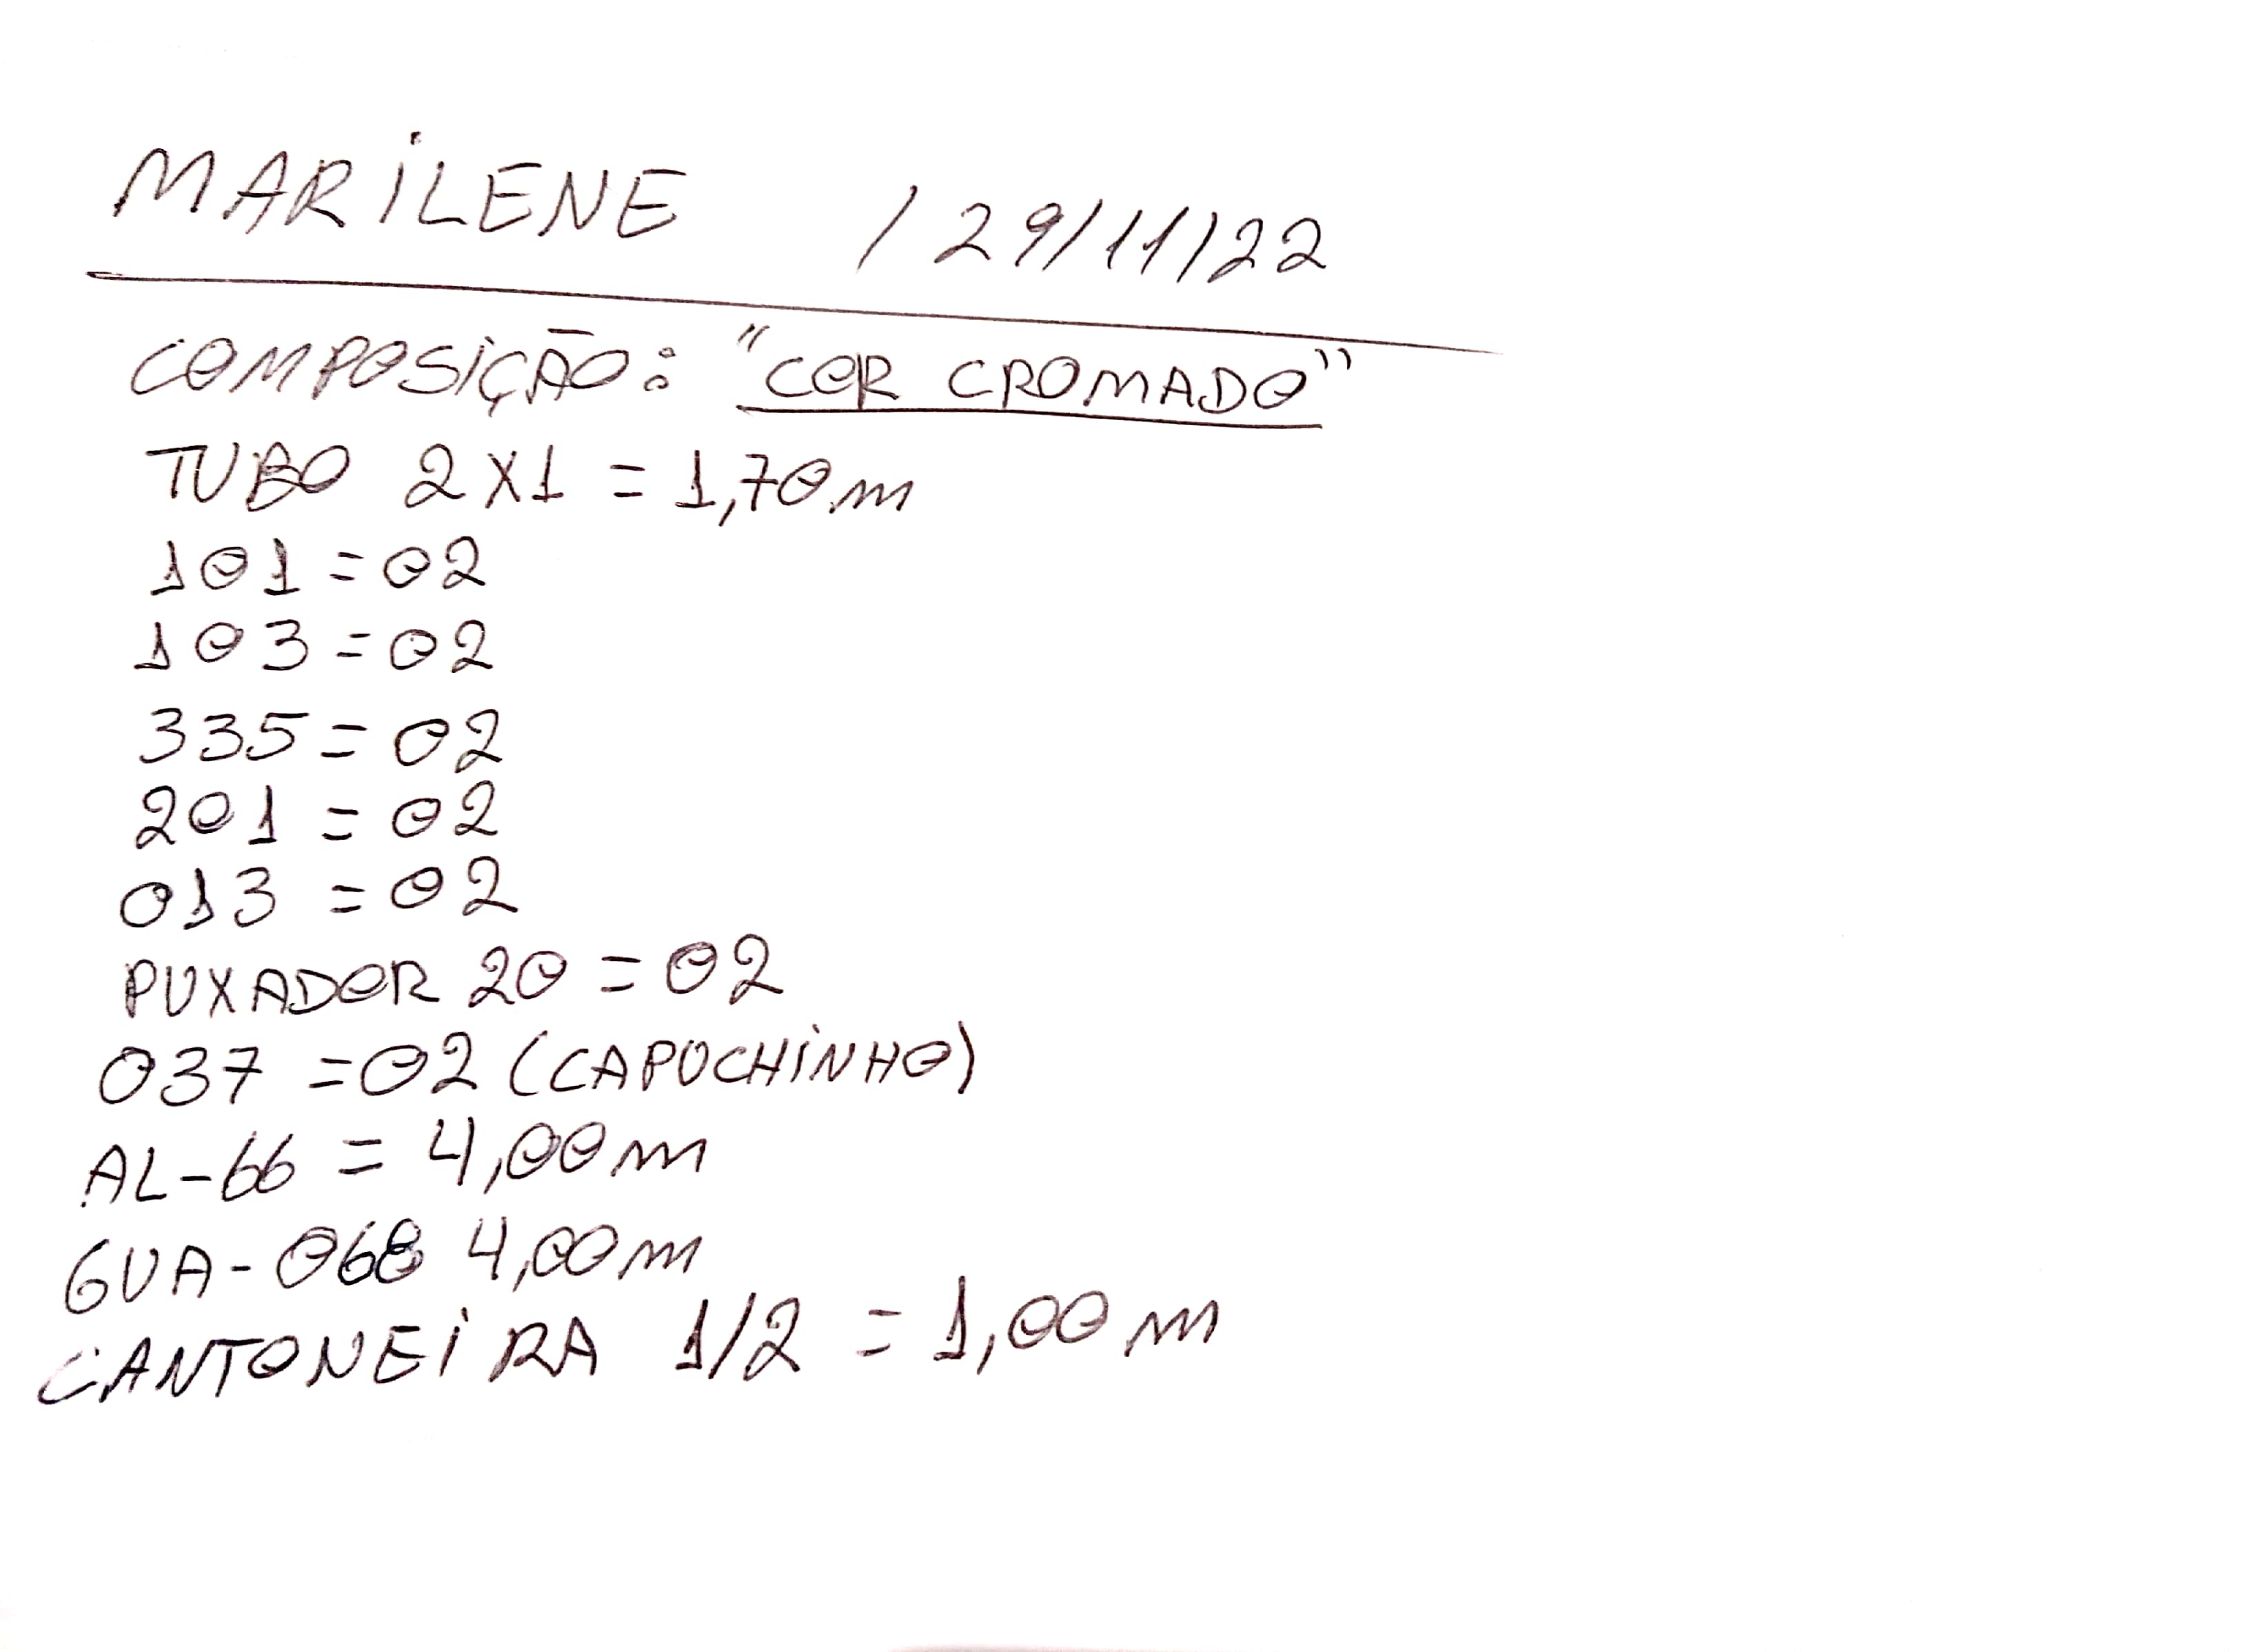 MARILENE / 29/11/22
COMPOSIÇÃO: "COR CROMADO"
TUBO 2X1 = 1,70m
101 = 02
103 = 02
335 = 02
201 = 02
013 = 02
PUXADOR 20 = 02
037 = 02 (CAPUCHINHO)
AL-66 = 4,00m
GUA-068 4,00m
CANTONEIRA 1/2 = 1,00m